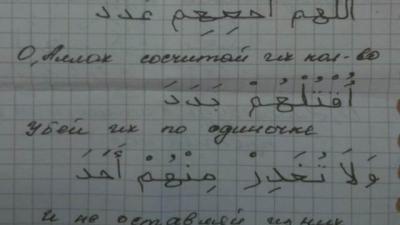 اللهم احصهم عدد
О, Аллах сосчитай их кол-во
أُقْتُلْهُمْ بَدَدَ
Убей их по одиночке
وَلاَ تُغَدِرْ مِنْهُمْ أَحَدَ
И не оставляй из них